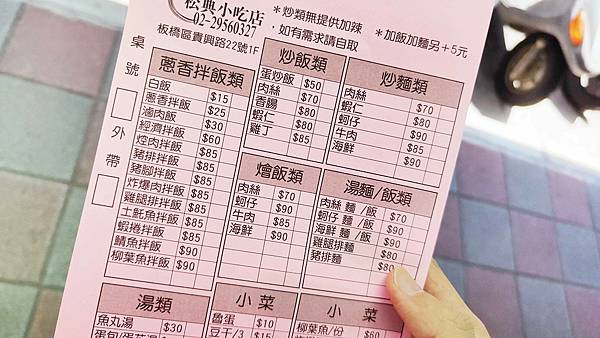 松典小吃店
02-29560327
板橋區貴興路22號1F
＊炒類無提供加辣，如有需求請自取
＊加飯加麵另＋5元
桌號
外帶
蔥香拌飯類
白飯 $15
蔥香拌飯 $25
滷肉飯 $30
經濟拌飯 $60
焢肉拌飯 $85
豬排拌飯 $85
豬腳拌飯 $85
炸爆肉拌飯 $85
雞腿排拌飯 $85
土魠魚拌飯 $90
蝦捲拌飯 $85
鯖魚拌飯 $90
柳葉魚拌飯 $90
炒飯類
蛋炒飯 $50
肉絲 $70
香腸 $80
蝦仁 $80
雞丁 $85
炒麵類
肉絲 $70
蝦仁 $80
蚵仔 $80
牛肉 $85
海鮮 $90
燴飯類
肉絲 $70
蚵仔 $90
牛肉 $85
海鮮 $90
湯麵/飯類
肉絲 麵 /飯 $70
蚵仔 麵 /飯 $90
海鮮 麵 /飯 $90
雞腿排麵 $80
豬排麵 $80
湯類
魚丸湯 $30
小菜
魯蛋 $10
豆干/3 $15
小菜
柳葉魚/份 $60